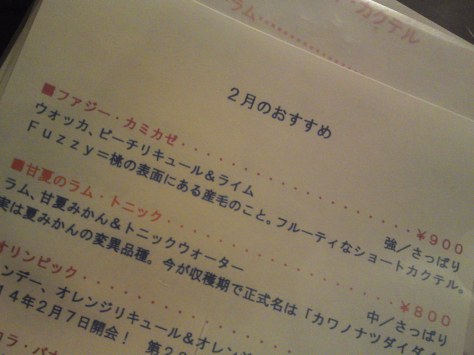 カクテル
２月のおすすめ
■ファジー・カミカゼ・・・・・・・・・・・・・・・￥９００
ウォッカ、ピーチリキュール＆ライム　強／さっぱり
Ｆｕｚｚｙ＝桃の表面にある産毛のこと。フルーティなショートカクテル。
■甘夏のラム・トニック・・・・・・・・・・・・・￥８００
ラム、甘夏みかん＆トニックウオーター　中／さっぱり
実は夏みかんの変異品種。今が収穫期で正式名は「カワノナツダイダイ
オリンピック・・・・・・・・・・・
ンデー、オレンジリキュール＆オレン
１４年２月７日開会！　第２